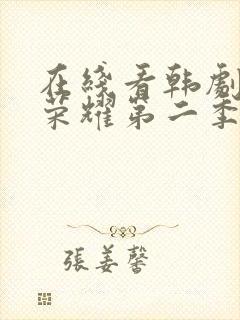 在线看韩劇
荣耀第二季
張姜馨